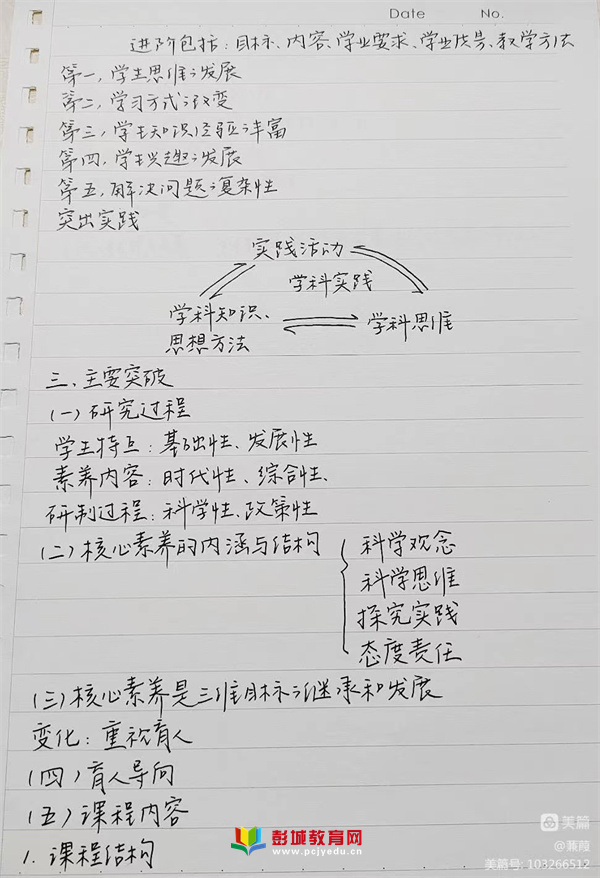 Date No.
进阶包括:目标、内容、学业要求、学业质量、教学方法
第一,学生思维之发展
第二,学习方式之改变
第三,学生知识经验之丰富
第四,学生兴趣之发展
第五,解决问题之复杂性
突出实践
实践活动
学科实践
学科知识、 学科思维
思想方法
三、主要突破
(一)研究过程
学生特点:基础性、发展性
素养内容:时代性、综合性、
研制过程:科学性、政策性
(二)核心素养的内涵与结构
科学观念
科学思维
探究实践
态度责任
(三)核心素养是三维目标之继承和发展
变化:重视育人
(四)育人导向
(五)课程内容
1.课程结构
彭城教育网
www.pcjyedu.cn
美篇
@蒹葭
美篇号: 103266512